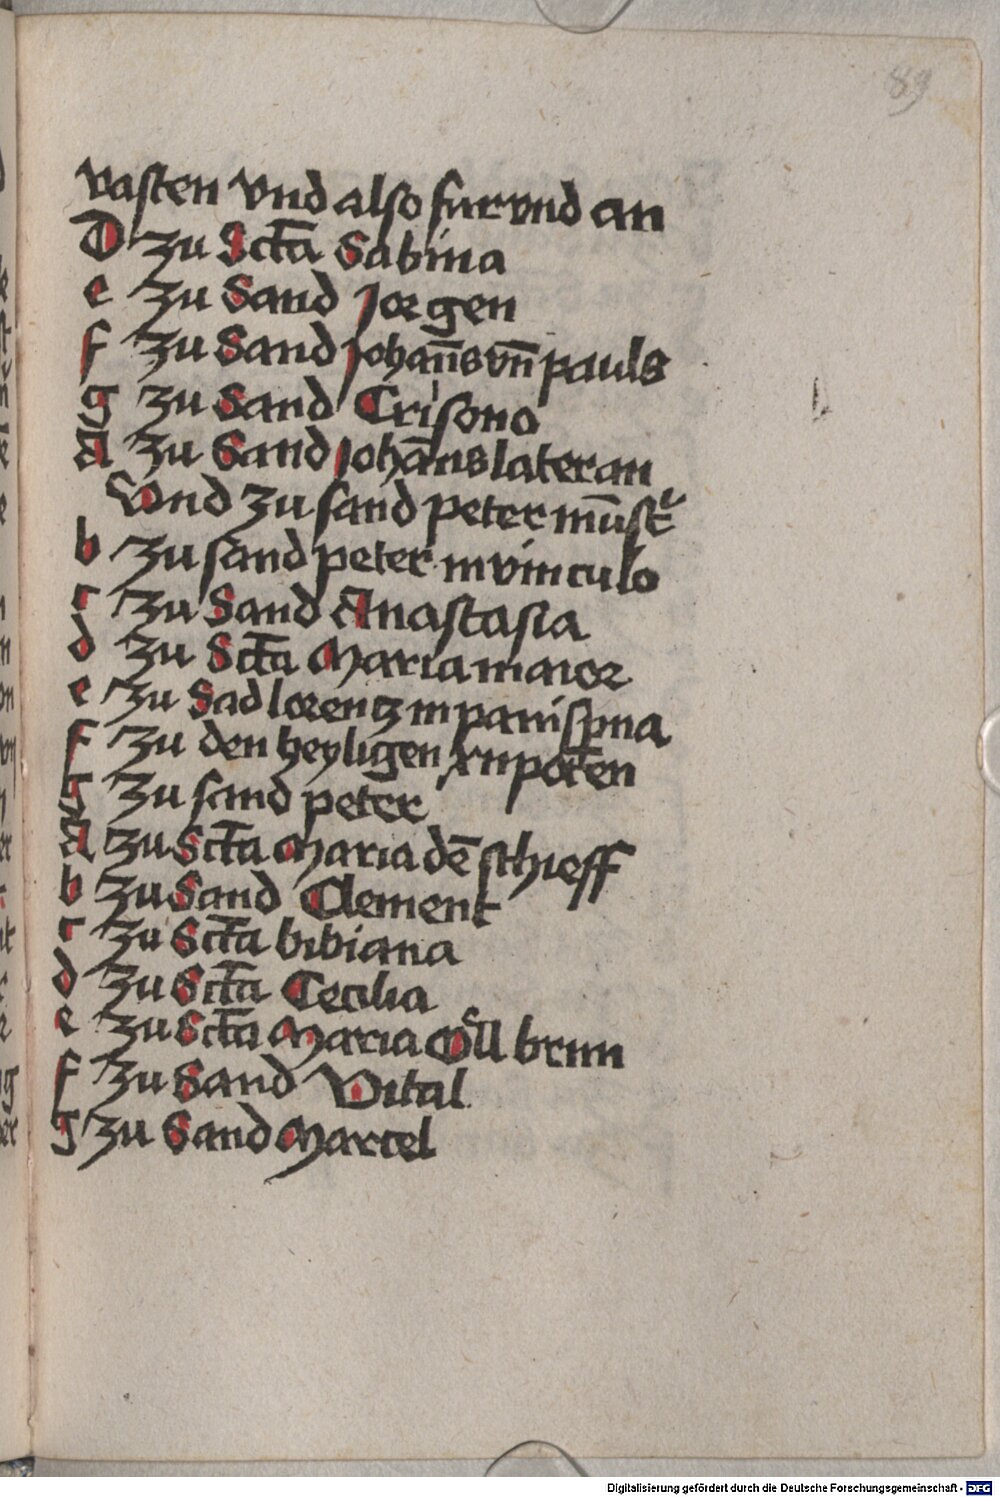 89
vasten vnd also fur vnd an
D zu Sct̄a Sabina
e zu Sand Jorgen
f zu Sand Johan̄s vn̄ pauls
g zu Sand Crisono
A zu Sand Johān̄s lateran
Vnd zu sand peter mūst͛
b zu sand peter in vinculo
c zu Sand Anastasia
d zu Sct̄a Maria maior
e zu Sad lorentz in panisp̄na
f zu den heyligen xii poten
g zu sand peter
A zu Sct̄a Maria dē schieff
b zu Sand Clement
c zu Sct̄a bibiana
d zu Sct̄a Cecilia
e zu Sct̄a Maria brun
f zu Sand Vital
g zu Sand Marcel
Digitalisierung gefördert durch die Deutsche Forschungsgemeinschaft - DFG